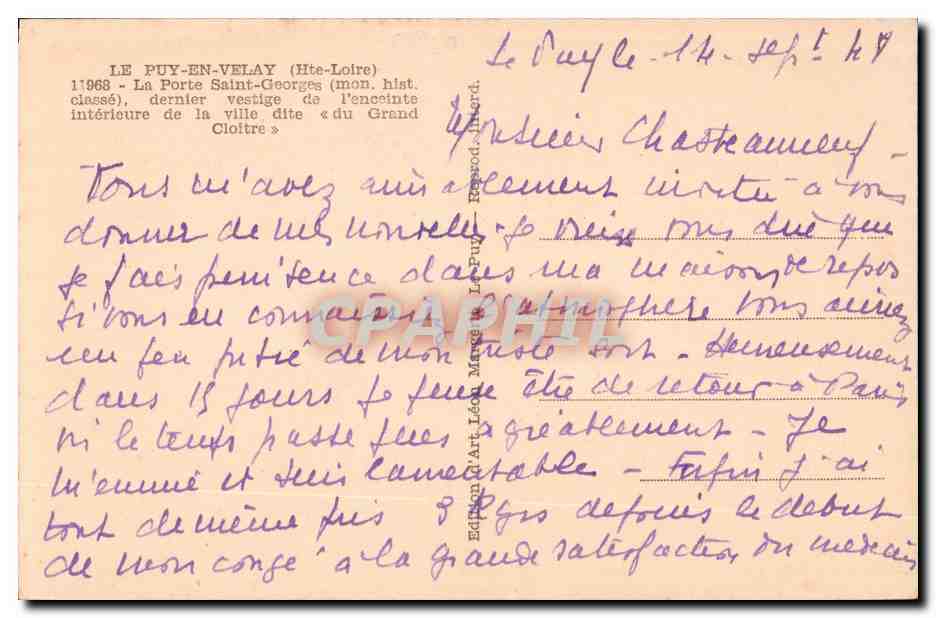 LE PUY-EN-VELAY (Hte-Loire)
11968 - La Porte Saint-Georges (mon. hist.
classé), dernier vestige de l'enceinte
intérieure de la ville dite « du Grand
Cloître »
Edition d'Art Léon Margerit Le Puy - Reprod. interd.
CPAPHIL
Le Puy le 14 sept 47
Monsieur Chasteauneuf -
Vous m'avez amicalement invité à vous
donner de mes nouvelles - Je vous dire que
Je fais penitence dans ma maison de repos
Si vous en connaissiez l'atmosphere vous auriez
un peu pitié de mon triste sort - Heureusement
dans 15 jours je pense être de retour à Paris
où le temps passe plus agréablement - Je
m'ennuie et suis lamentable - Enfin j'ai
tout de même pris 3 Kgrs depuis le debut
de mon congé à la grande satisfaction du medecin